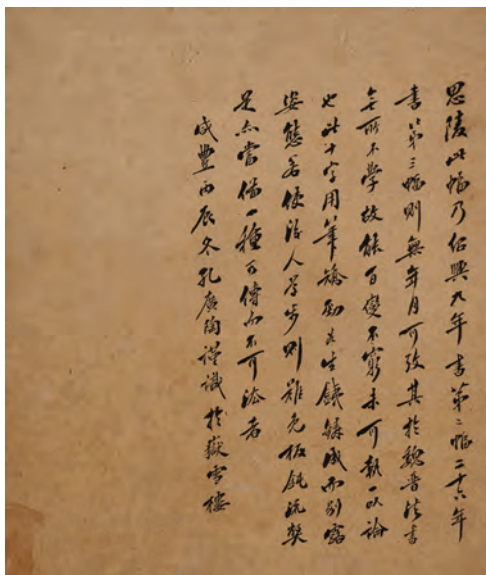 思陵此幅乃紹興九年書第二幅二十六年
書第三幅則無年月可攷其於魏晉法書
無所不學故能百變不窮未可執一以論
也此十字用筆矯勁 生鐵鑄成而別露
姿態若使後人學步則難免板鈍流獘
是亦當備一種可傳而不可法者
咸豐丙辰冬孔廣陶謹識於嶽雪樓